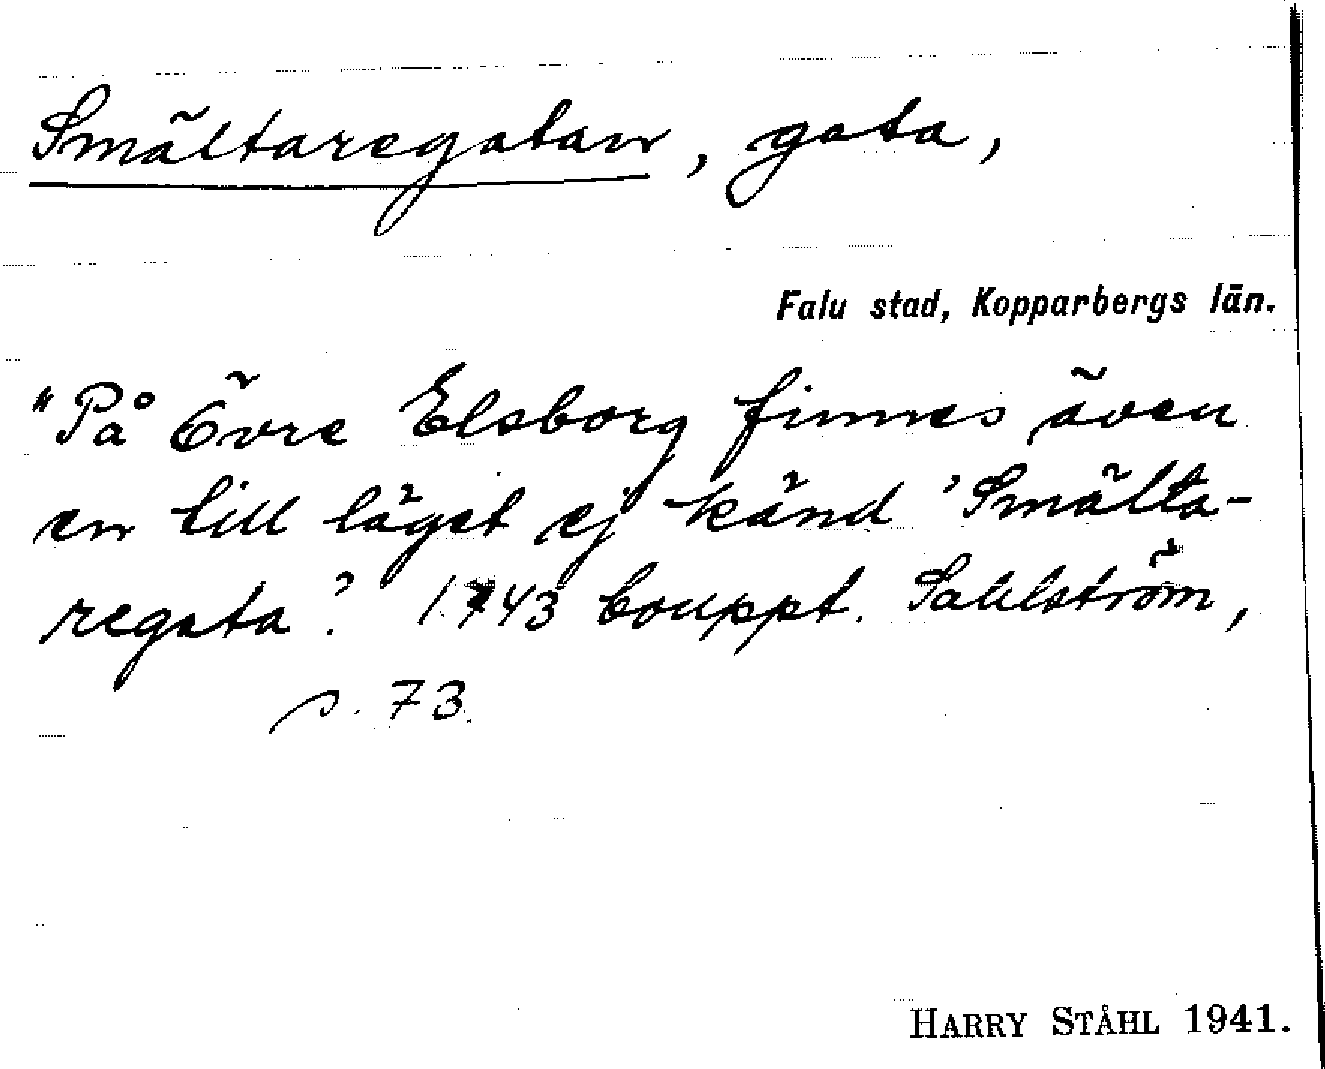 Smältaregatan, gata,
Falu stad, Kopparbergs län.
"På Övre Elsborg finnes även
en till läget ej känd 'Smälta-
regata'. 1743 bouppt. Sahlström,
s. 73.
HARRY STÅHL 1941.